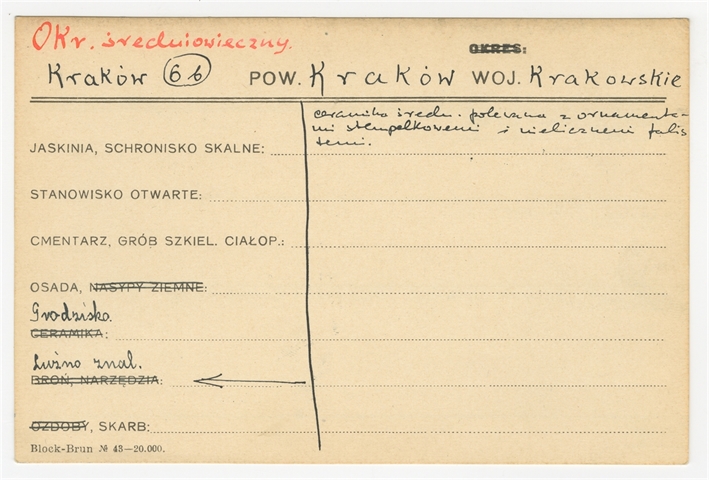 OKr. średniowieczny.
OKRES:
Kraków 66 POW. Kraków WOJ. Krakowskie
ceramika średn. polewana z ornamenta-
mi stempelkowemi i nielicznemi falis
temi.
JASKINIA, SCHRONISKO SKALNE:
STANOWISKO OTWARTE:
CMENTARZ, GRÓB SZKIEL. CIAŁOP.:
OSADA, NASYPY ZIEMNE:
Grodzisko.
CERAMIKA:
Luźno znal.
BROŃ, NARZĘDZIA:
OZDOBY, SKARB:
Block-Brun № 43—20.000.